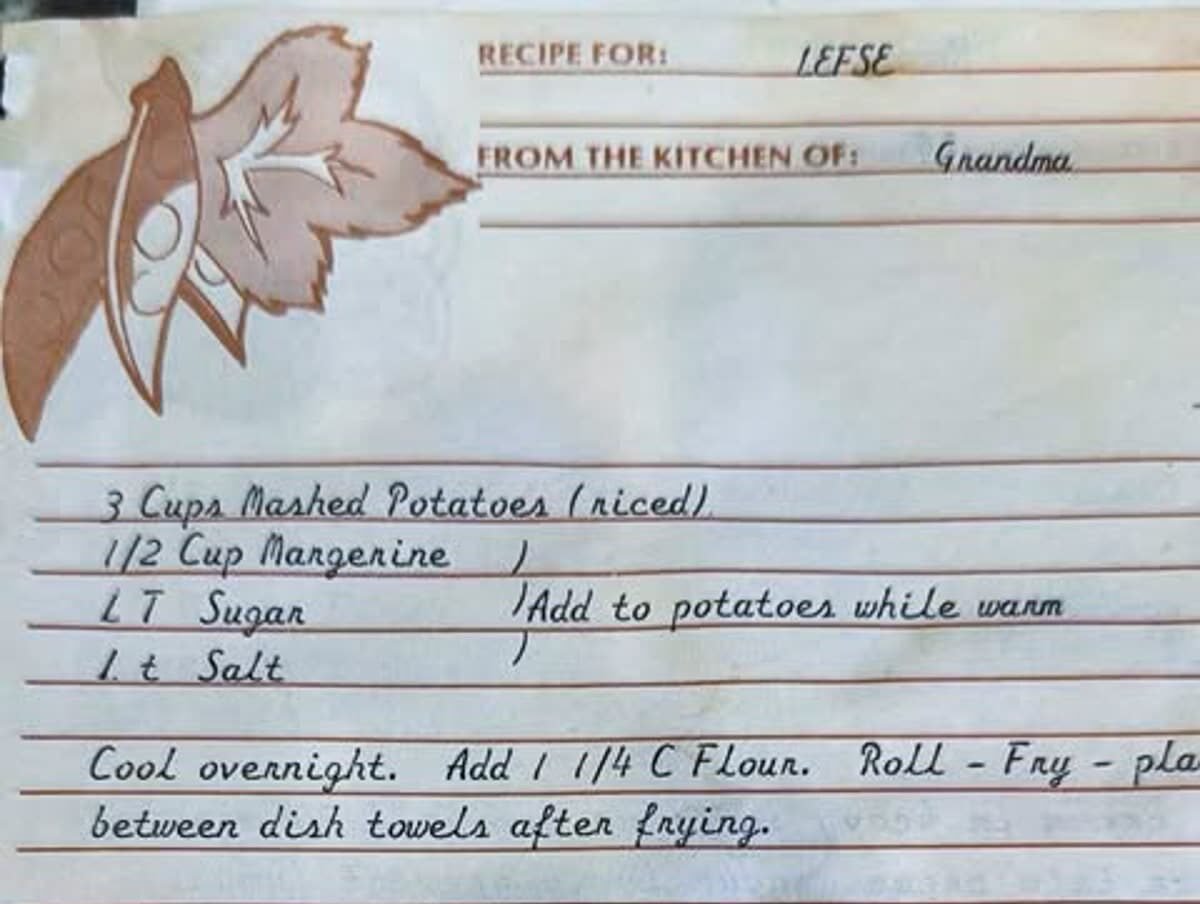 RECIPE FOR: LEFSE
FROM THE KITCHEN OF: Grandma
3 Cups Mashed Potatoes (riced)
1/2 Cup Margerine )
1 T Sugar )Add to potatoes while warm
1 t Salt )
Cool overnight. Add 1 1/4 C Flour. Roll - Fry - pla
between dish towels after frying.